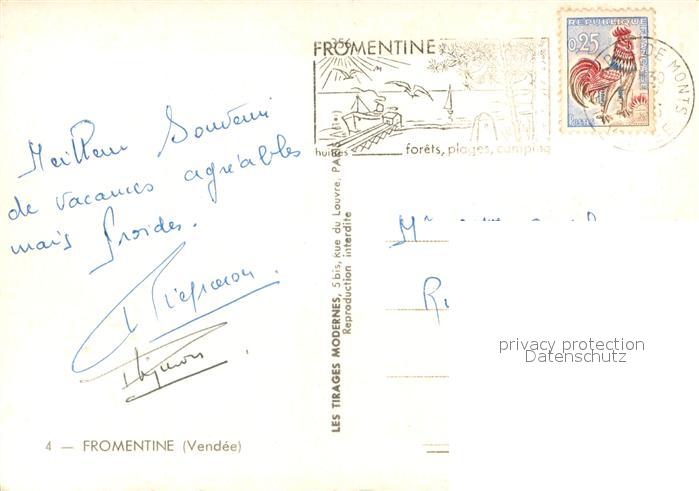 FROMENTINE
huîtres forêts, plages, camping
REPUBLIQUE
FRANCAISE
0,25
Postes
DE MONTS
Meilleur Souvenir
de vacances agréables
mais froides.
LES TIRAGES MODERNES, 5 bis, Rue du Louvre, PARIS
Reproduction interdite
Mr
privacy protection
Datenschutz
4 — FROMENTINE (Vendée)